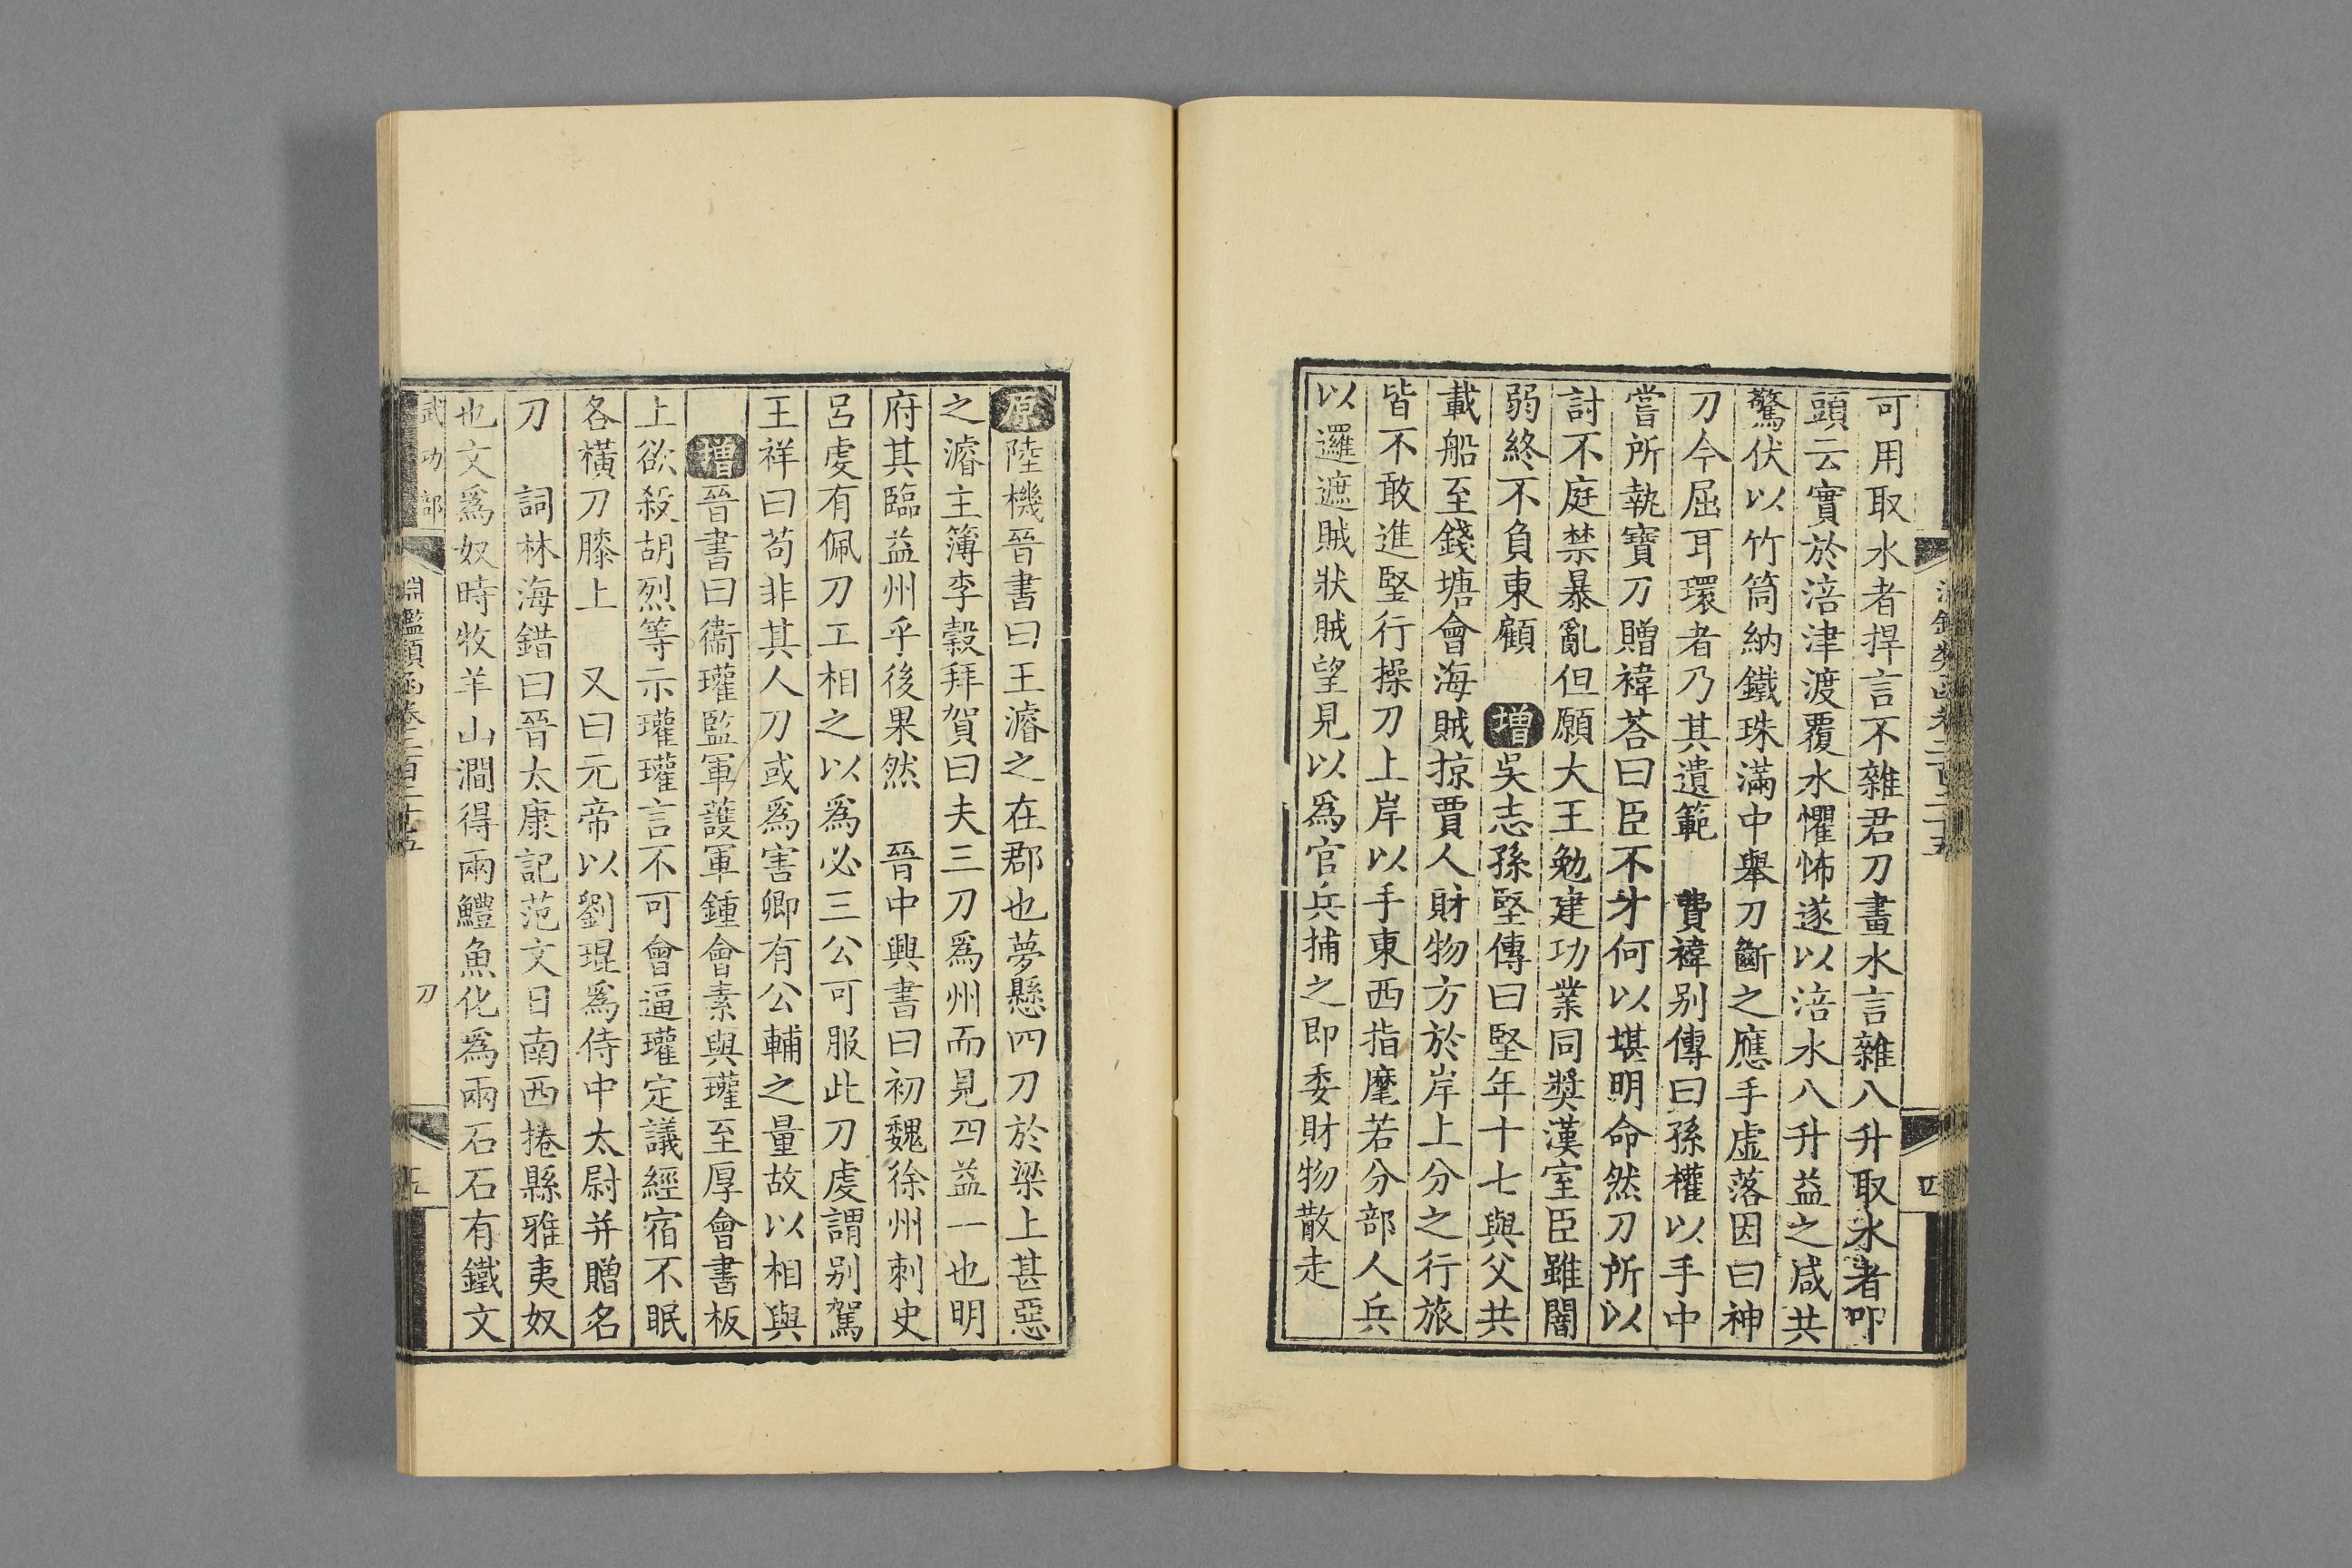 可用取水者捍言不雜君刀畫水言雜八升取水者叩
頭云實於涪津渡覆水懼怖遂以涪水八升益之咸共
驚伏以竹筒納鐵珠滿中舉刀斷之應手虛落因曰神
刀今屈耳環者乃其遺範　費禕别傳曰孫權以手中
嘗所執寶刀贈禕荅曰臣不才何以堪明命然刀所以
討不庭禁暴亂但願大王勉建功業同獎漢室臣雖闇
弱終不負東顧　增吳志孫堅傳曰堅年十七與父共
載船至錢塘會海賊掠賈人財物方於岸上分之行旅
皆不敢進堅行操刀上岸以手東西指麾若分部人兵
以邏遮賊狀賊望見以爲官兵捕之即委財物散走
四
原陸機晉書曰王濬之在郡也夢懸四刀於梁上甚惡
之濬主簿李毅拜賀曰夫三刀爲州而見四益一也明
府其臨益州乎後果然　晉中興書曰初魏徐州刺史
呂虔有佩刀工相之以爲必三公可服此刀虔謂别駕
王祥曰苟非其人刀或爲害卿有公輔之量故以相與
增晉書曰衞瓘監軍護軍鍾會素與瓘至厚會書板
上欲殺胡烈等示瓘瓘言不可會逼瓘定議經宿不眠
各橫刀膝上　又曰元帝以劉琨爲侍中太尉并贈名
刀　詞林海錯曰晉太康記范文日南西捲縣雅夷奴
也文爲奴時牧羊山澗得兩鱧魚化爲兩石石有鐵文
武功部　淵鑑類函卷二百二十五　刀　五